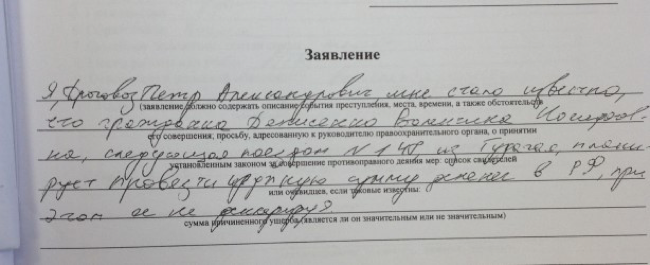 Заявление
Я, Дроговоз Петр Александрович мне стало известно,
(заявление должно содержать описание события преступления, места, времени, а также обстоятельств
что гражданка Денисенко Валентина
его совершения; просьбу, адресованную к руководителю правоохранительного органа, о принятии
на, следующая поездом N 147 из плани-
установленным законом за совершение противоправного деяния мер: список свидетелей
рует провезти крупную сумму денег в РФ, при
или очевидцев, если таковые известны:
этом ее не декларируя.
сумма причиненного ущерба (является ли он значительным или не значительным)